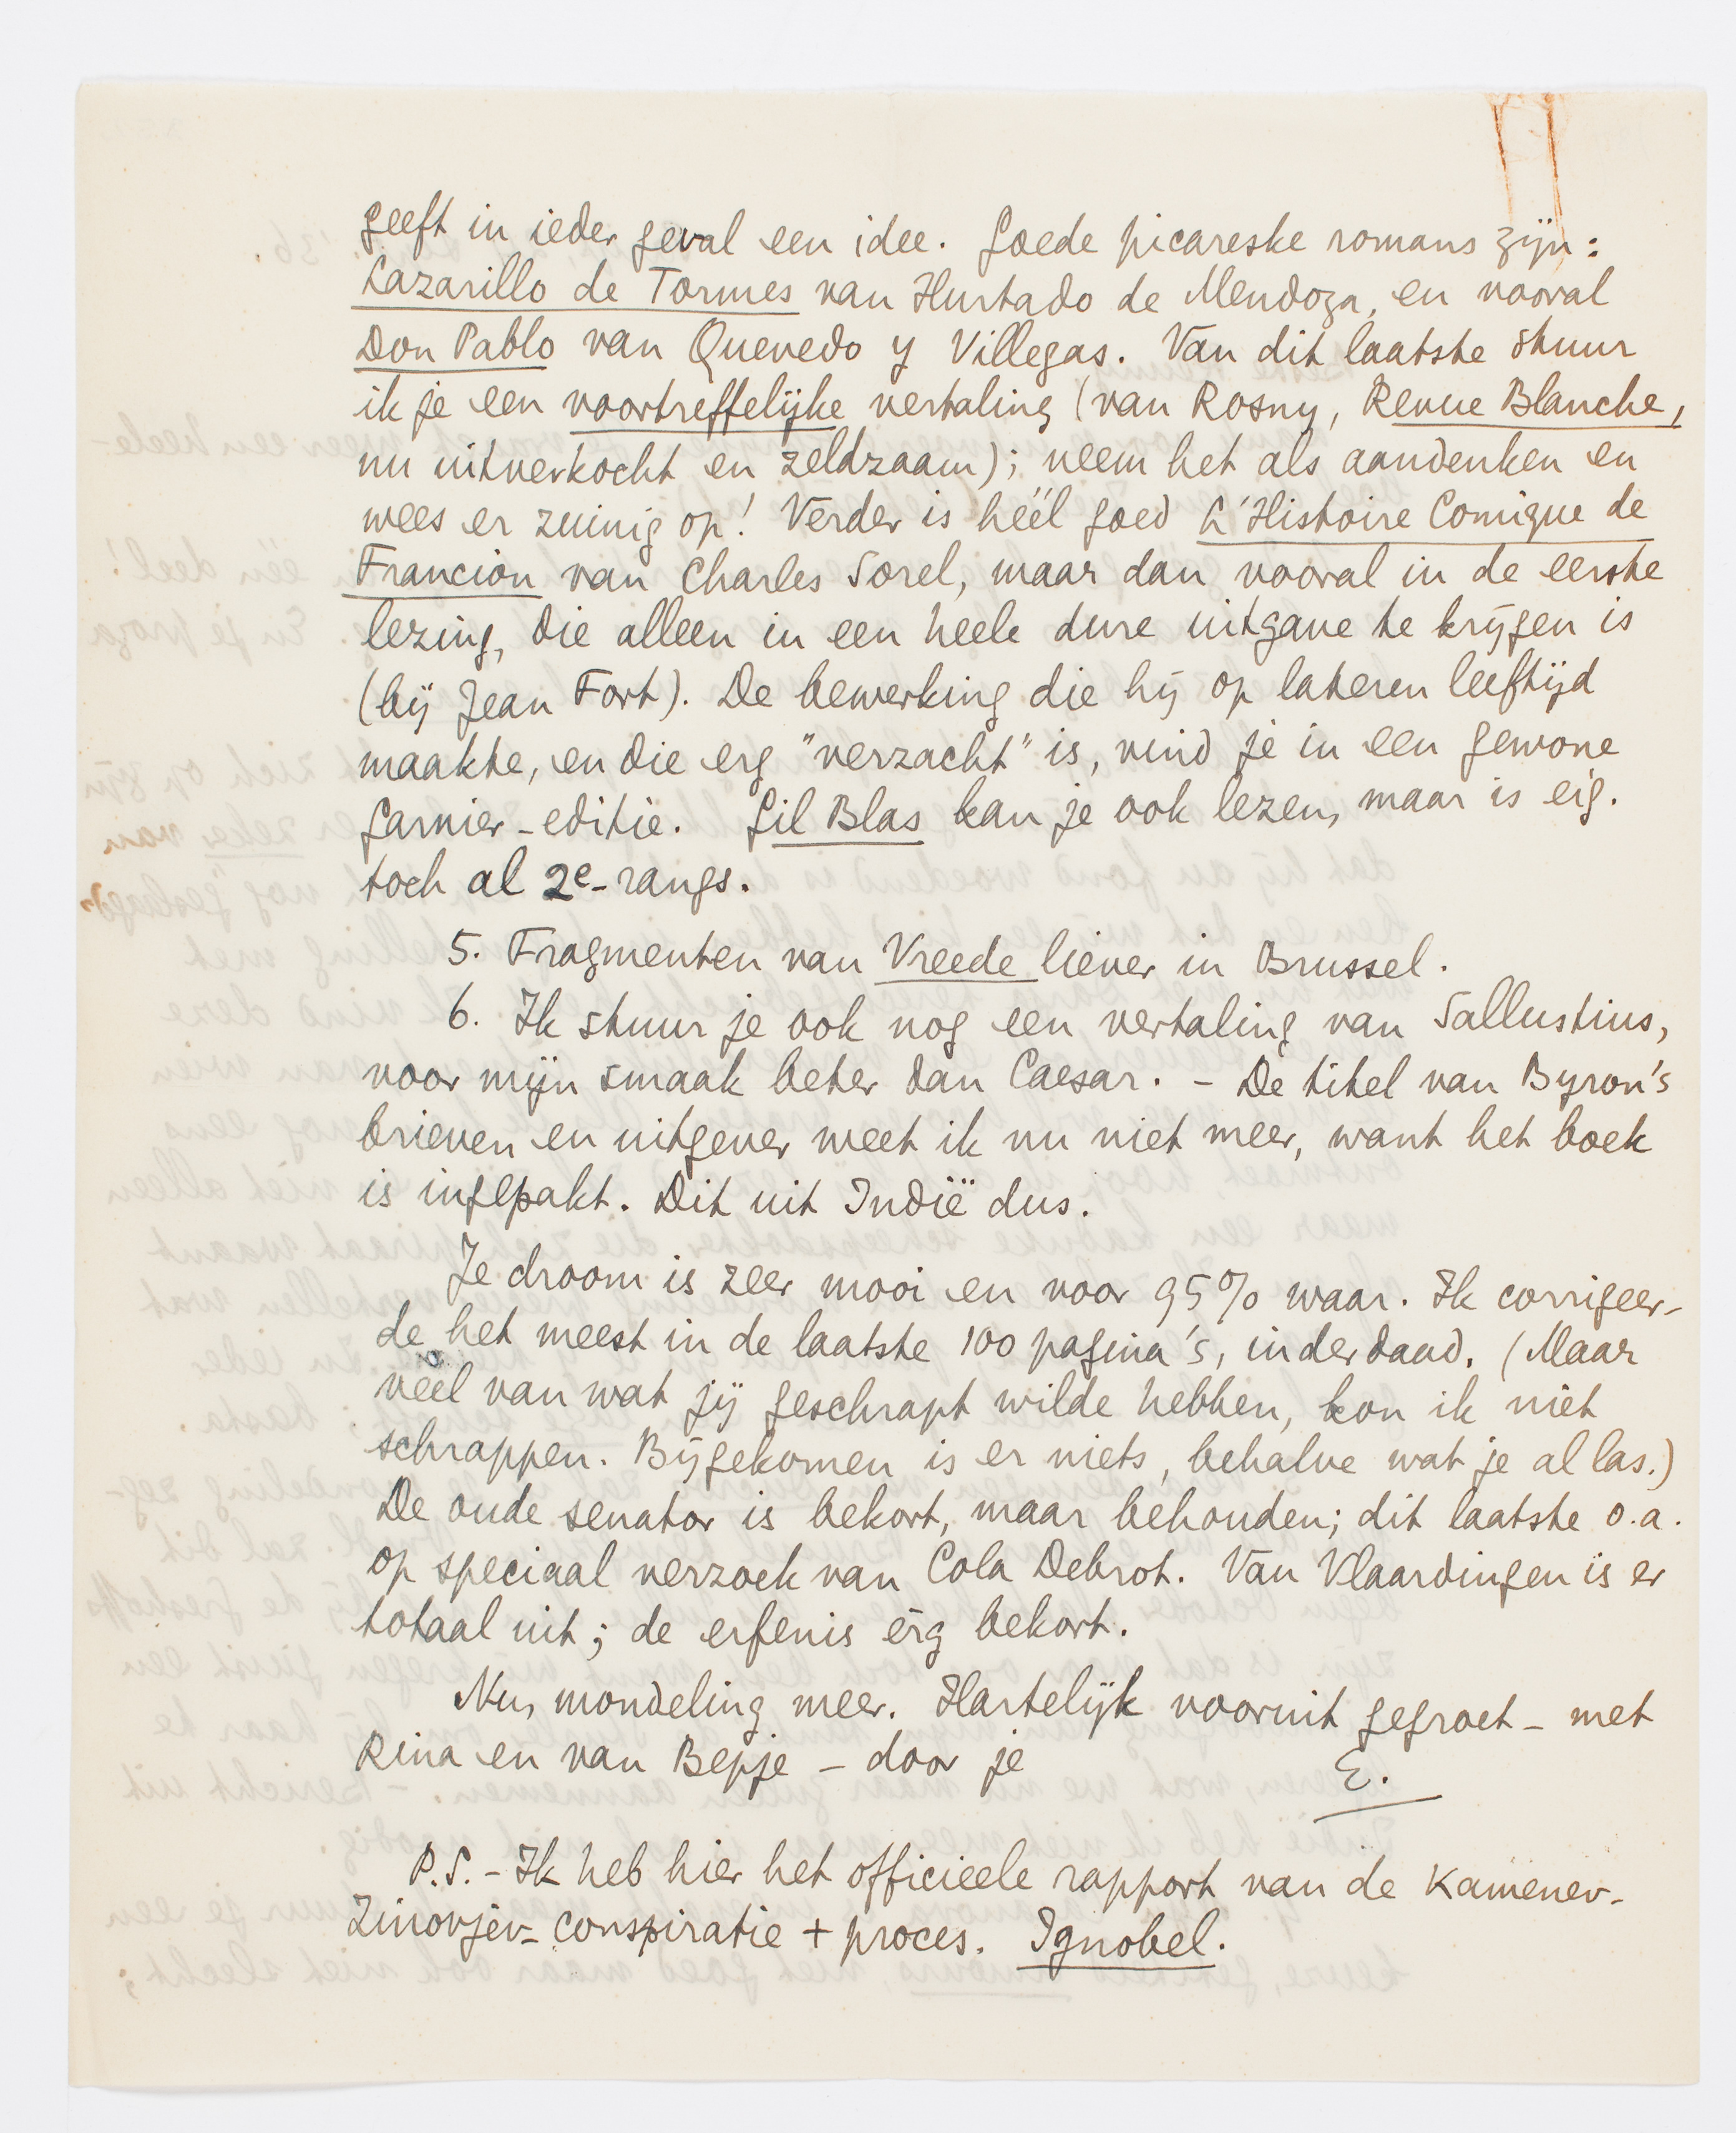 geeft in ieder geval een idee. Goede picareske romans zijn:
Lazarillo de Tormes van Hurtado de Mendoza, en vooral
Don Pablo van Quevedo y Villegas. Van dit laatste stuur
ik je een voortreffelijke vertaling (van Rosny, Revue Blanche,
nu uitverkocht en zeldzaam); neem het als aandenken en
wees er zuinig op! Verder is héél goed L'Histoire Comique de
Francion van Charles Sorel, maar dan vooral in de eerste
lezing, die alleen in een heele dure uitgave te krijgen is
(bij Jean Fort). De bewerking die hij op lateren leeftijd
maakte, en die erg "verzacht" is, vind je in een gewone
Garnier-editie. Gil Blas kan je ook lezen, maar is eig.
toch al 2e-rangs.
5. Fragmenten van Vreede liever in Brussel.
6. Ik stuur je ook nog een vertaling van Sallustius,
voor mijn smaak beter dan Caesar. - De titel van Byron's
brieven en uitgever weet ik nu niet meer, want het boek
is ingepakt. Dit uit Indië dus.
Je droom is zeer mooi en voor 95% waar. Ik corrigeer-
de het meest in de laatste 100 pagina's, inderdaad. (Maar
veel van wat jij geschrapt wilde hebben, kon ik niet
schrappen. Bijgekomen is er niets, behalve wat je al las.)
De oude senator is bekort, maar behouden; dit laatste o.a.
op speciaal verzoek van Cola Debrot. Van Vlaardingen is er
totaal uit; de erfenis erg bekort.
Nu, mondeling meer. Hartelijk vooruit gegroet - met
Rina en van Bepje - door je
E.
P.S. - Ik heb hier het officieele rapport van de Kamenev-
Zinovjev-conspiratie + proces. Ignobel.